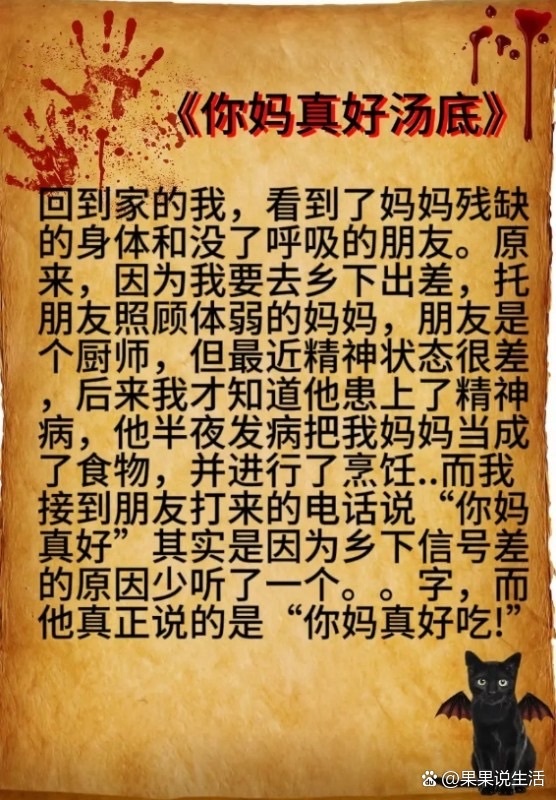 《你妈真好汤底》
回到家的我，看到了妈妈残缺
的身体和没了呼吸的朋友。原
来，因为我要去乡下出差，托
朋友照顾体弱的妈妈，朋友是
个厨师，但最近精神状态很差
，后来我才知道他患上了精神
病，他半夜发病把我妈妈当成
了食物，并进行了烹饪..而我
接到朋友打来的电话说“你妈
真好”其实是因为乡下信号差
的原因少听了一个。。字，而
他真正说的是“你妈真好吃!”
du @果果说生活